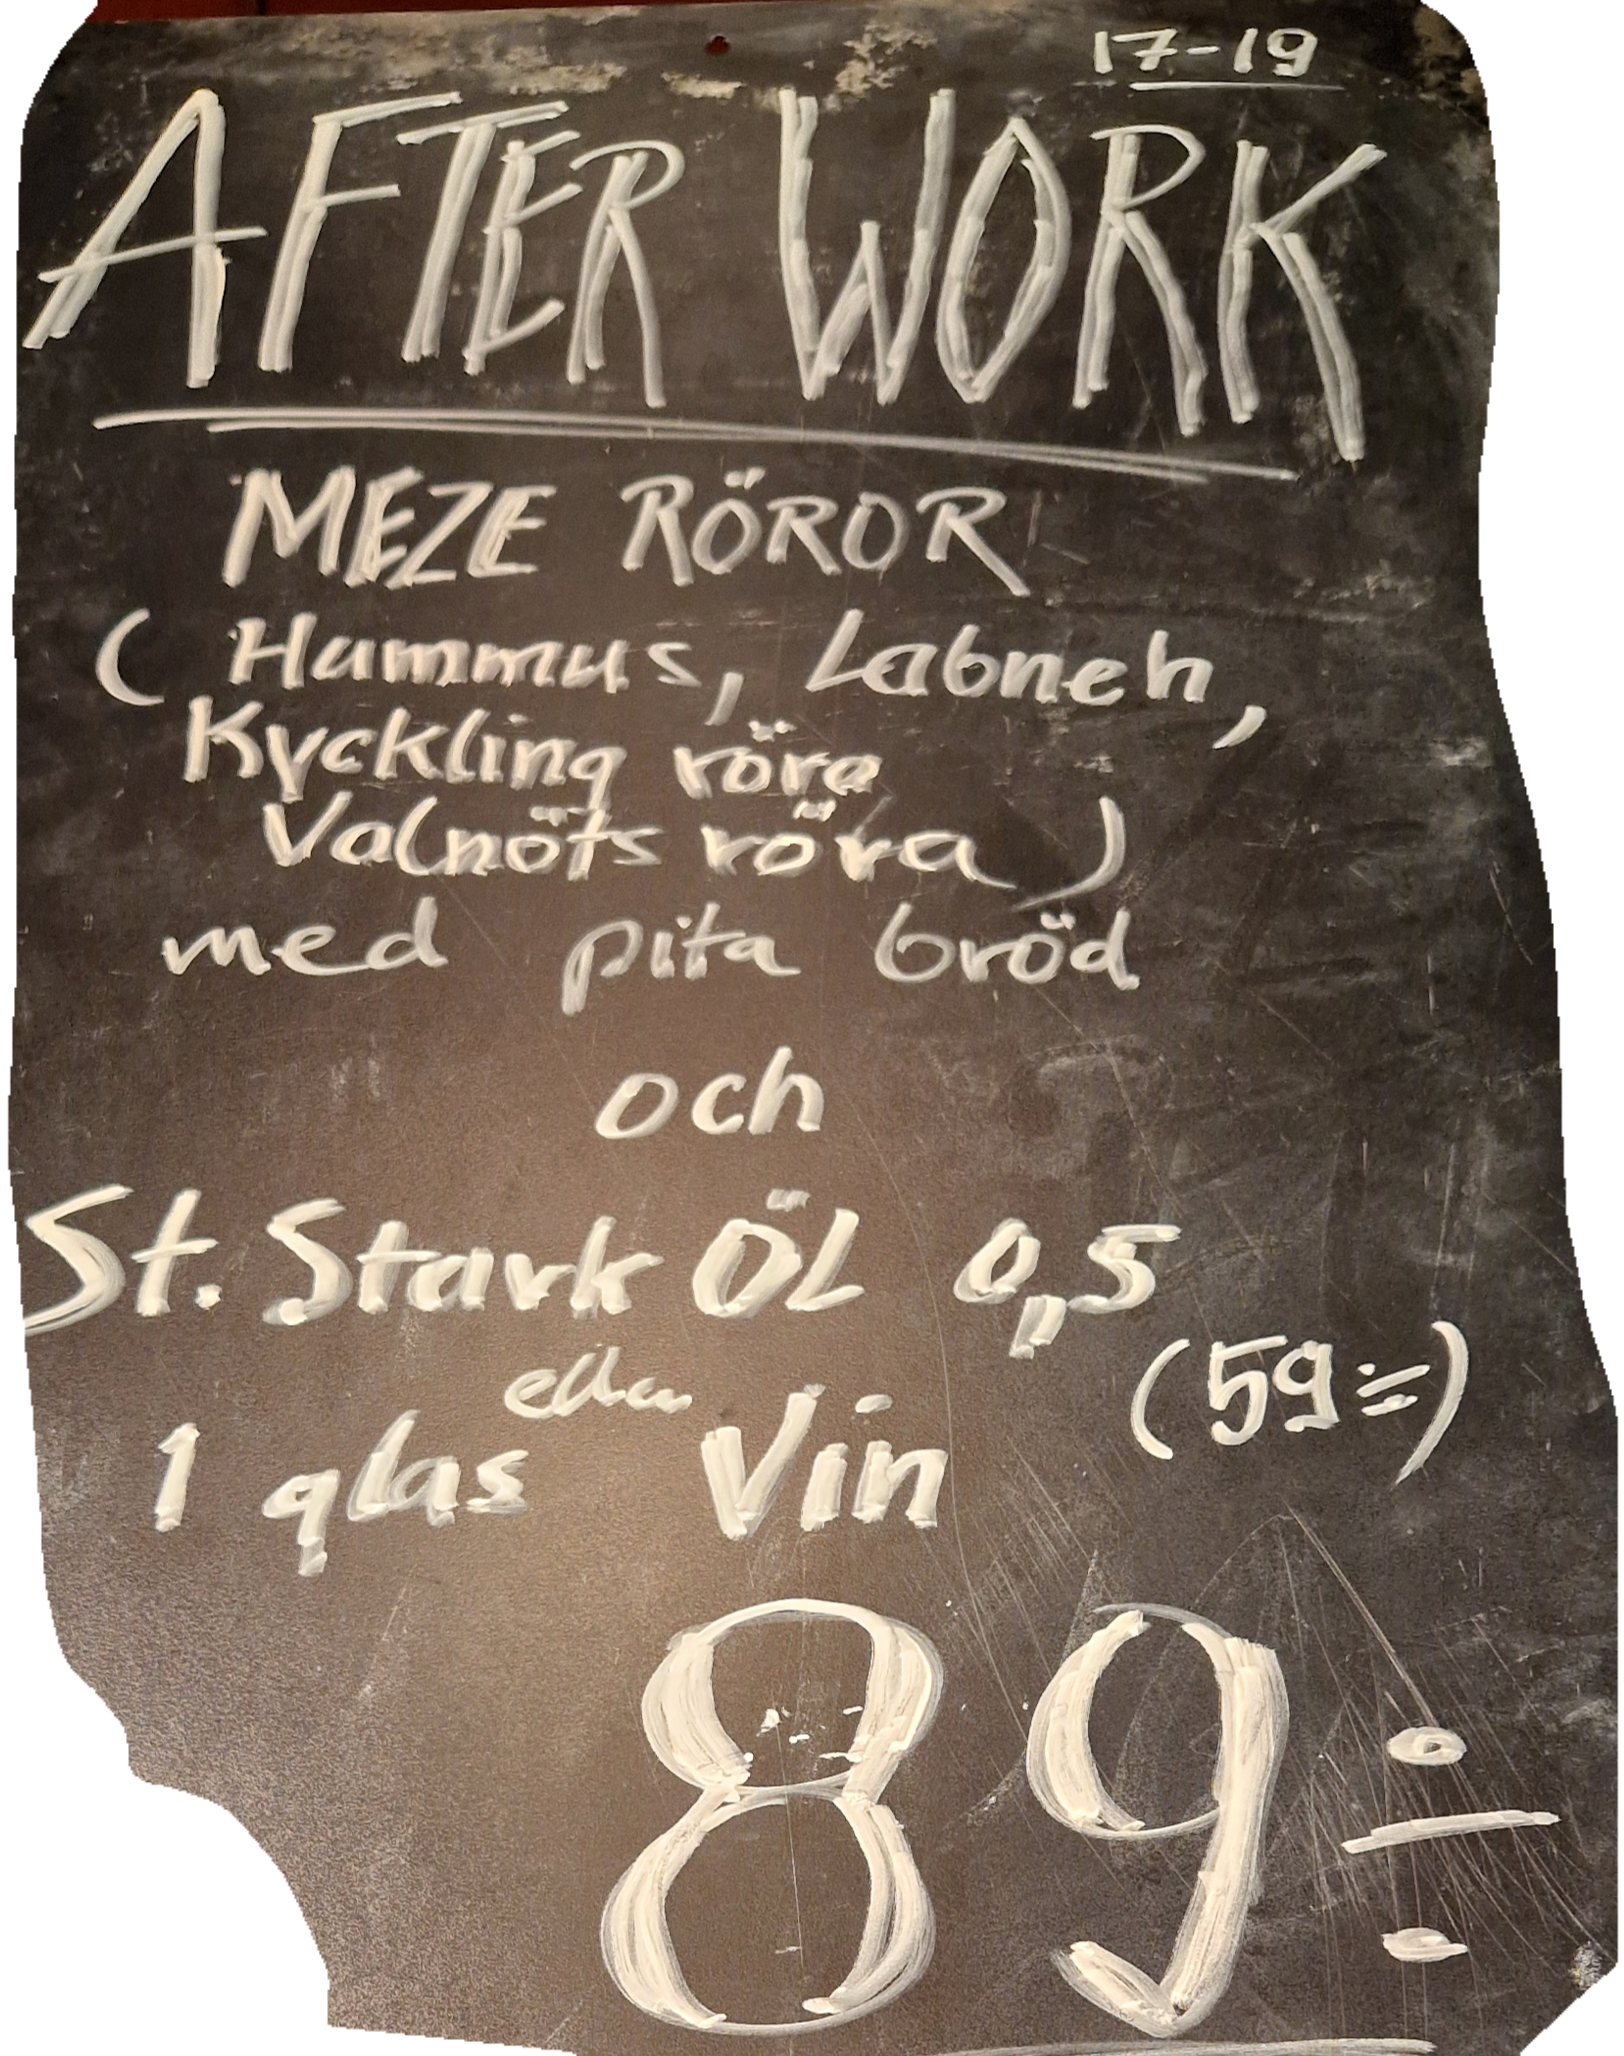 17-19
AFTER WORK
MEZE RÖROR
( Hummus, Labneh,
Kyckling röra
Valnöts röra )
med pita bröd
och
St. Stark ÖL 0,5
eller
(59÷)
1 glas Vin
89÷